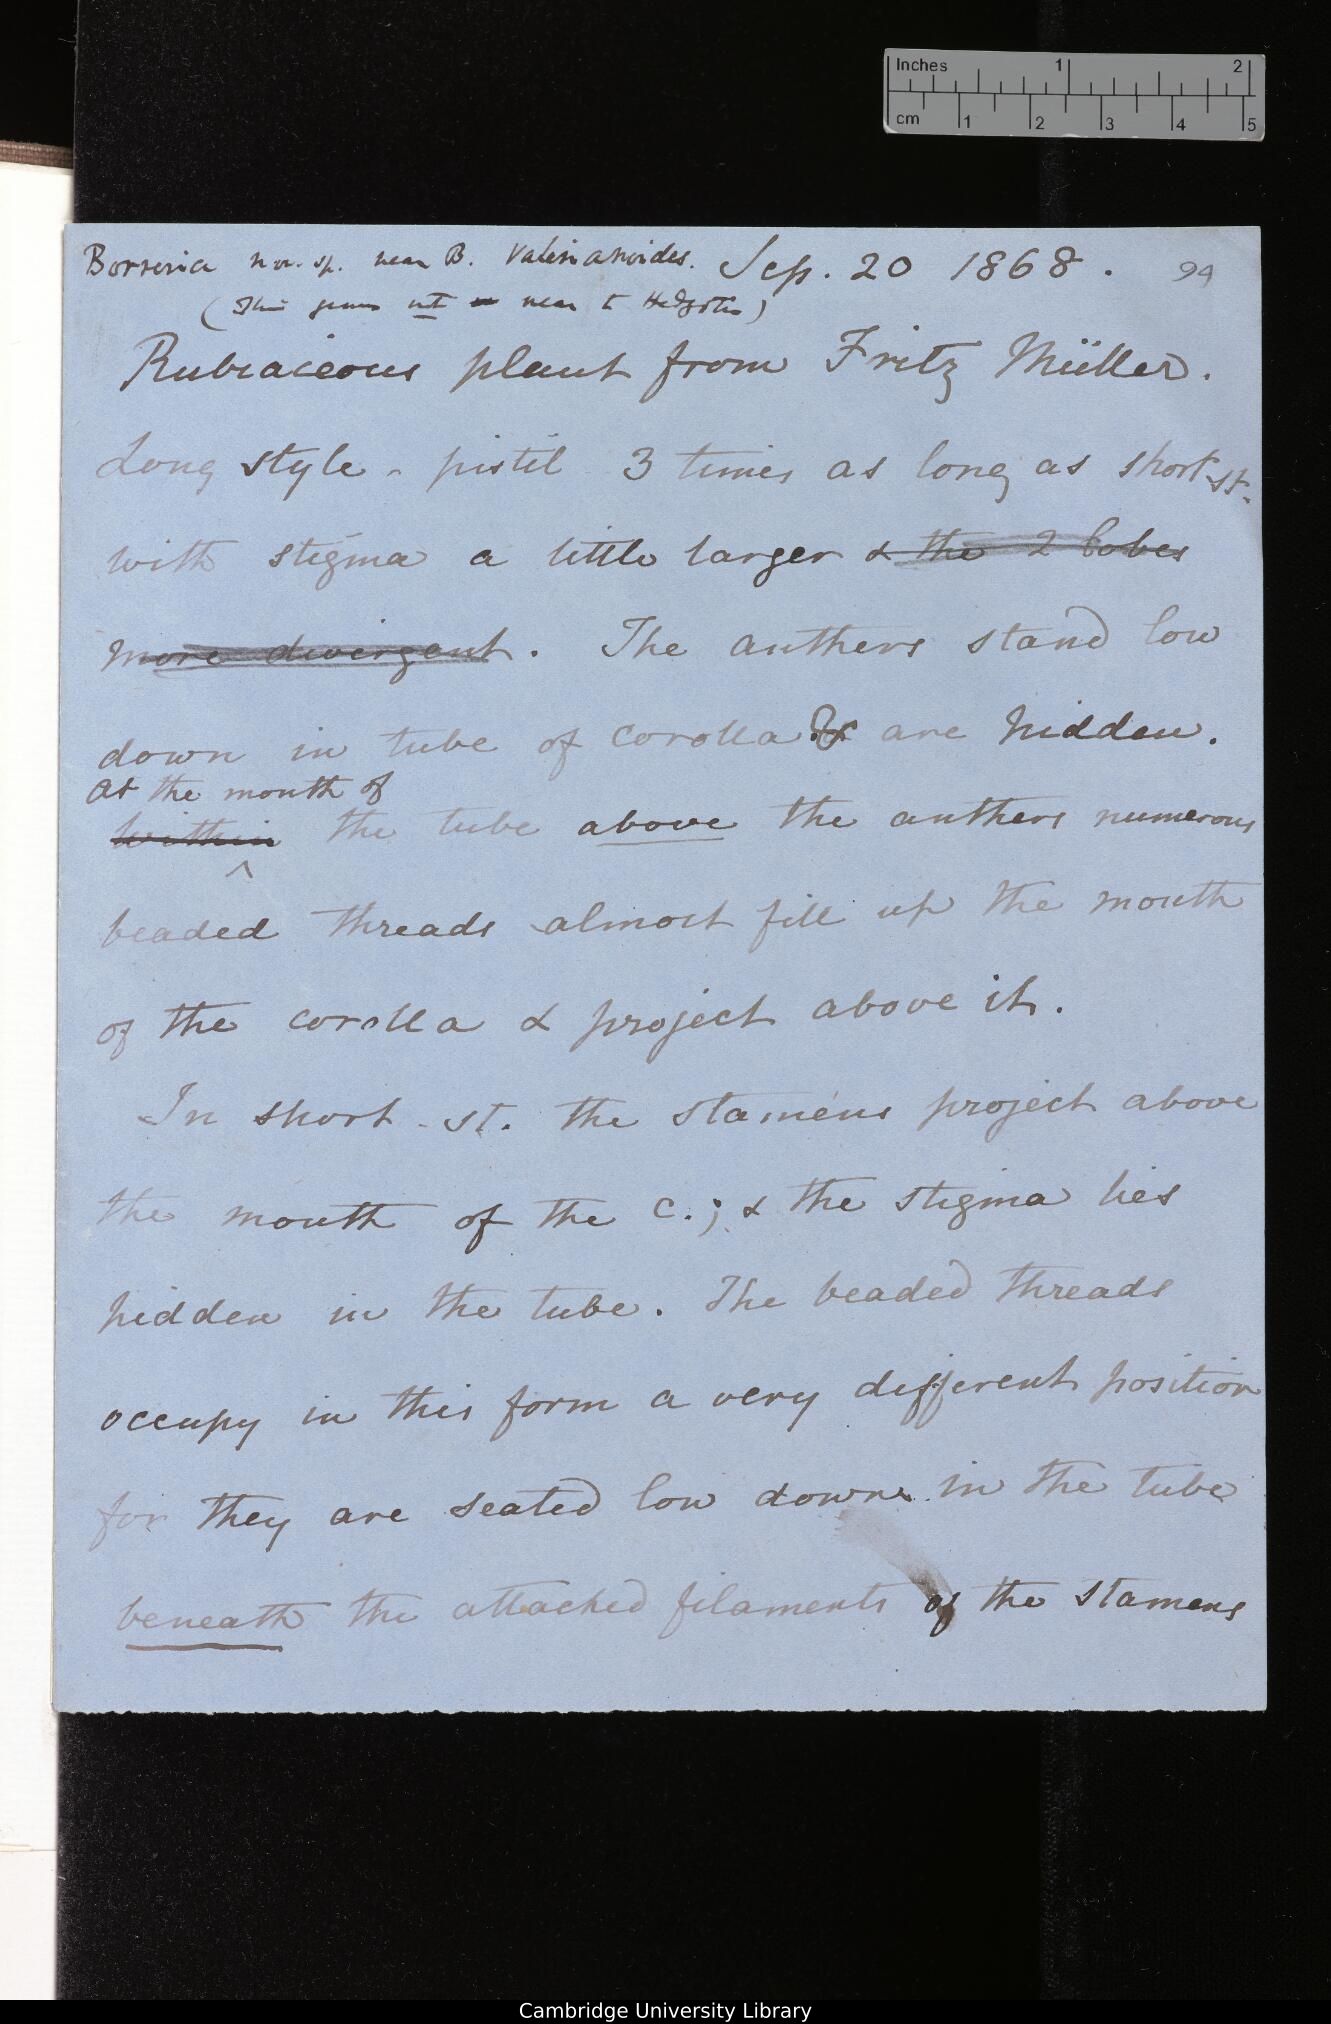 Inches 1 2
cm 1 2 3 4 5
Borreria nov. sp. near B. Valerianoides. Sep. 20 1868. 94
(This genus not near to Hedyotis)
Rubiaceous plant from Fritz Müller.
Long style - pistil 3 times as long as short-st.
with stigma a little larger & the 2 lobes
more divergent. The anthers stand low
down in tube of corolla & are hidden.
At the mouth of
within the tube above the anthers numerous
beaded threads almost fill up the mouth
of the corolla & project above it.
In short-st. the stamens project above
the mouth of the c.; & the stigma lies
hidden in the tube. The beaded threads
occupy in this form a very different position
for they are seated low down in the tube
beneath the attached filaments of the stamens
Cambridge University Library